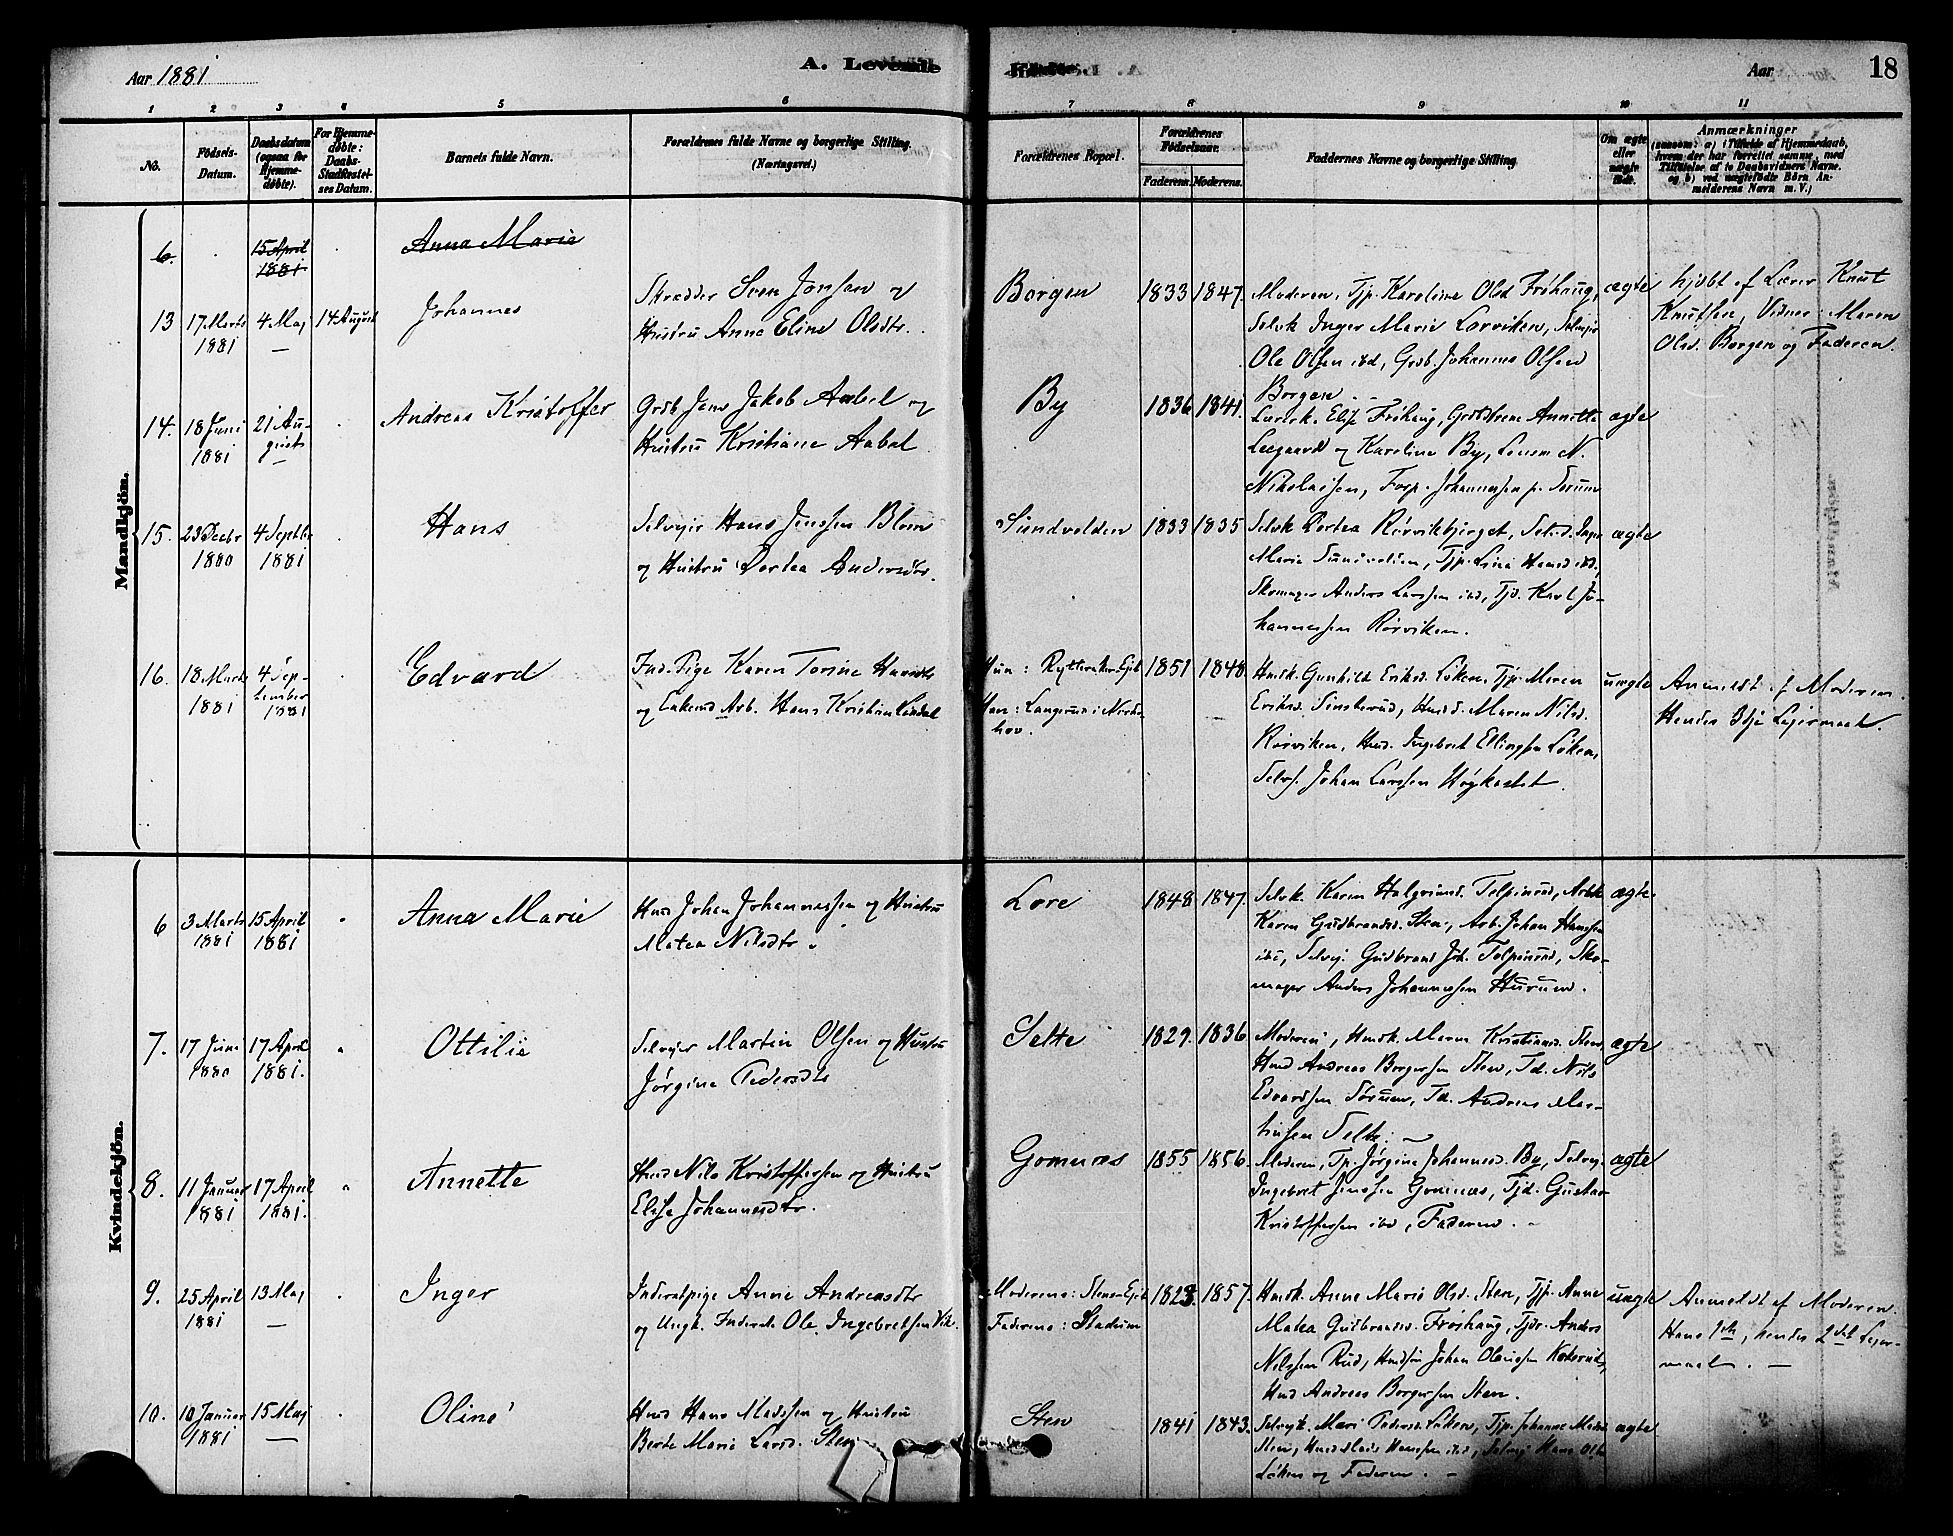 Aar 1881
A. Levende
Födte.
Aar
18
1 2 3 4 5 6 7 8 9 10 11
No.
Födsels-Datum.
Daabsdatum (ogsaa for Hjemmedöbte).
For Hjemmedöbte: Daabs-Stadfæstelses Datum.
Barnets fulde Navn.
Forældrenes fulde Navne og borgerlige Stilling. (Næringsvei.)
Forældrenes Bopæl.
Forældrenes Födselsaar.
Faderens. Moderens.
Faddernes Navne og borgerlige Stilling.
Om ægte eller uægte födt.
Anmærkninger
(saasom: a) i Tilfælde af Hjemmedaab, hvem der har forrettet samme, med Tilföielse af to Daabsvidners Navne. og b) ved uægtefödte Börn Anmelderens Navn m. V.)
Mandkjön.
6. 15 April 1881 Anna Marie
13 17 Marts 1881 4 Maj — 14 August Johannes
Skrædder Sven Jonsen og
Hustru Anne Eline Olsdtr.
Borgen 1833 1847.
Moderen, Tjp. Karoline Olsd. Fröhaug,
Selvk Inger Marie Lorviken, Selvejer
Ole Olsen ibd, Grdb. Johannes Olsen
Borgen
ægte
hjdbt af Lærer Knut
Knutsen, Vidner: Maren
Olsd. Borgen og Faderen.
14. 18 Juni 1881 21 August — Andreas Kristoffer
Grdb Jens Jakob Aabel og
Hustru Kristiane Aabel
By 1836 1841.
Lærerk. Elise Fröhaug, Annette
Leegaard og Karoline By, N.
Nikolaisen, Forp. Johannessen p. Sörum
ægte
15. 23 Decbr 1880 4 Septbr 1881 Hans
Selvejer Hans Jenssen Blom
og Hustru Dortea Andersdtr.
Sundvolden 1833 1835
Selvk Dortea Rörvikbjerget, Selvd. Inger
Marie Sundvolden, Tjp. Lina Hansd ibd,
Skomager Anders Larssen ibd, Tjd. Karl Jo-
hannessen Rörviken.
ægte
16. 18 Marts 1881 4 September 1881 Edvard
Ind. Pige Karen Torine Hansdtr
og Enkemd Arb. Hans Kristian
Hun: Rytteraker Ejd.
Han: Langerud i Norder-
hov.
1851 1848
Husk. Gunhild Eriksd. Löken, Tjp. Maren
Eriksd. Sinsterud, Husd. Maren Nilsd.
Rörviken, Husd. Ingebret Ellingsen Löken,
Selvs. Johan Larssen Högkastet.
uægte
Anmeldt af Moderen.
Hendes 3dje Lejermaal.
Kvindekjön.
6 3 Marts 1881 15 April 1881 Anna Marie
Husd Johan Johannessen og Hustru
Matea Nilsdtr.
Lore 1848 1847.
Selvk. Karen Halgrimsd. Tolpinrud, Arbk
Karen Gudbrandsd. Sten, Arb. Johan Hanssen
ibd, Selvej. Gudbrand Joh. Tolpinrud, Sko-
mager Anders Johannessen Hurum.
ægte
7. 17 Juni 1880 17 April 1881. Ottilie
Selvejer Martin Olsen og Hustru
Jørgine Pedersdtr
Selte 1829. 1836
Moderen, Husk. Maren Kristiansd. Sten,
Husd Andreas Borgersen Sten, Td. Nils
Edvardsen Sörum, Td. Andreas Mar-
tinsen Selte. —
ægte
8. 11 Januar 1881 17 April 1881. Annette
Husd Nils Kristoffersen og Hustru
Elise Johannesdtr.
Gomnæs 1855 1856.
Moderen, Tp. Jørgine Johannesd. By, Selvej.
Ingebret Jenssen Gomnæs, Tjd. Gustav
Kristoffersen ibd, Faderen.
ægte
9. 25 April 1881 13 Maj — Inger
Inderstpige Anne Andreasdtr
og Ungk. Inderst Ole Ingebretsen Vik.
Moderens: Stens-Ejd.
Faderens: Stadum
1823. 1857.
Husk. Anne Marie Olsd. Sten, Tjp. Anne
Matea Gudbrandsd. Fröshaug, Tjdr. Anders
Nilssen Rud, Husdsön Johan Olaussen
Husd Andreas Borgersen Sten.
uægte
Anmeldt af Moderen.
Hans 1ste, hendes 2det Lejer-
maal. —
10. 10 Januar 1881 15 Maj — Oline
Husd Hans Madssen og Hustru
Berte Marie Larsd. Sten
Sten 1841 1843.
Selvejk. Mari Pedersd. Löken, Tjp. Johanne Madsd
Sten, Husd Hanssen ibd, Selvej Hans Olsen
Löken og Faderen. —
ægte